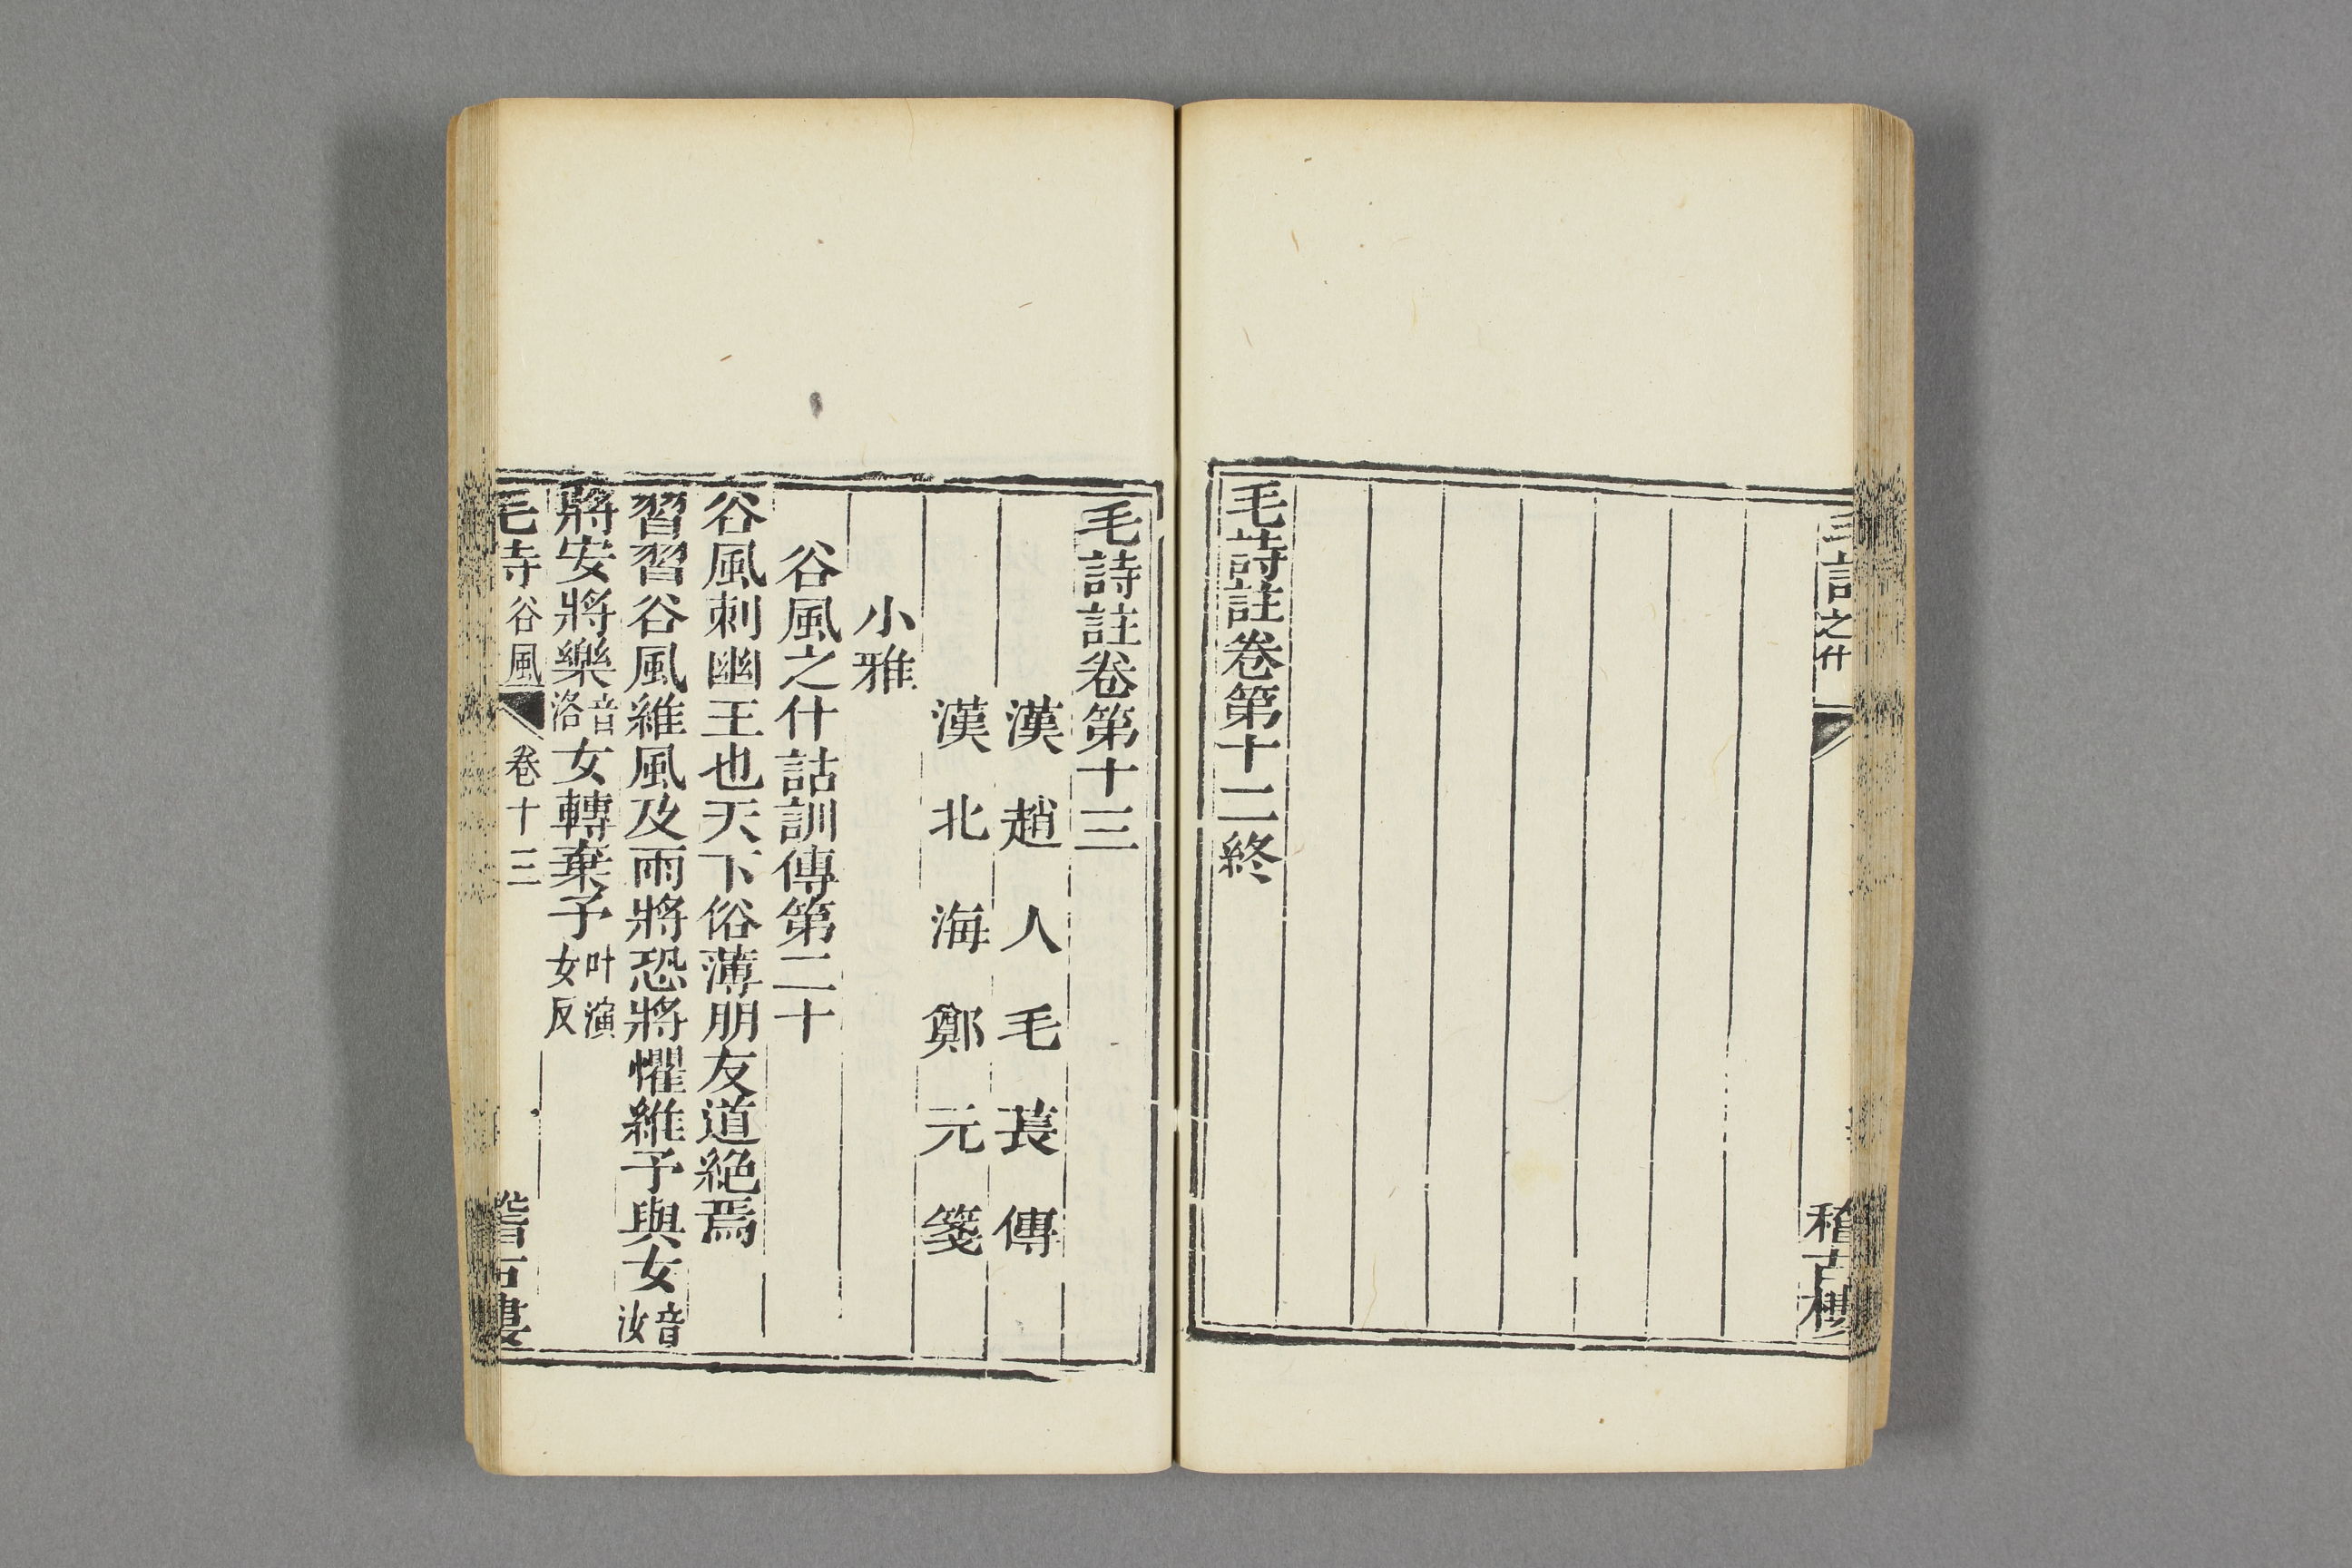 毛詩之什
稽古樓
毛詩註卷第十二終
毛詩註卷第十三
漢趙人毛萇傳
漢北海鄭元箋
小雅
谷風之什詁訓傳第二十
谷風刺幽王也天下俗薄朋友道絶焉
習習谷風維風及雨將恐將懼維予與女音汝
將安將樂音洛女轉棄予叶演女反
毛詩谷風 卷十三
稽古樓